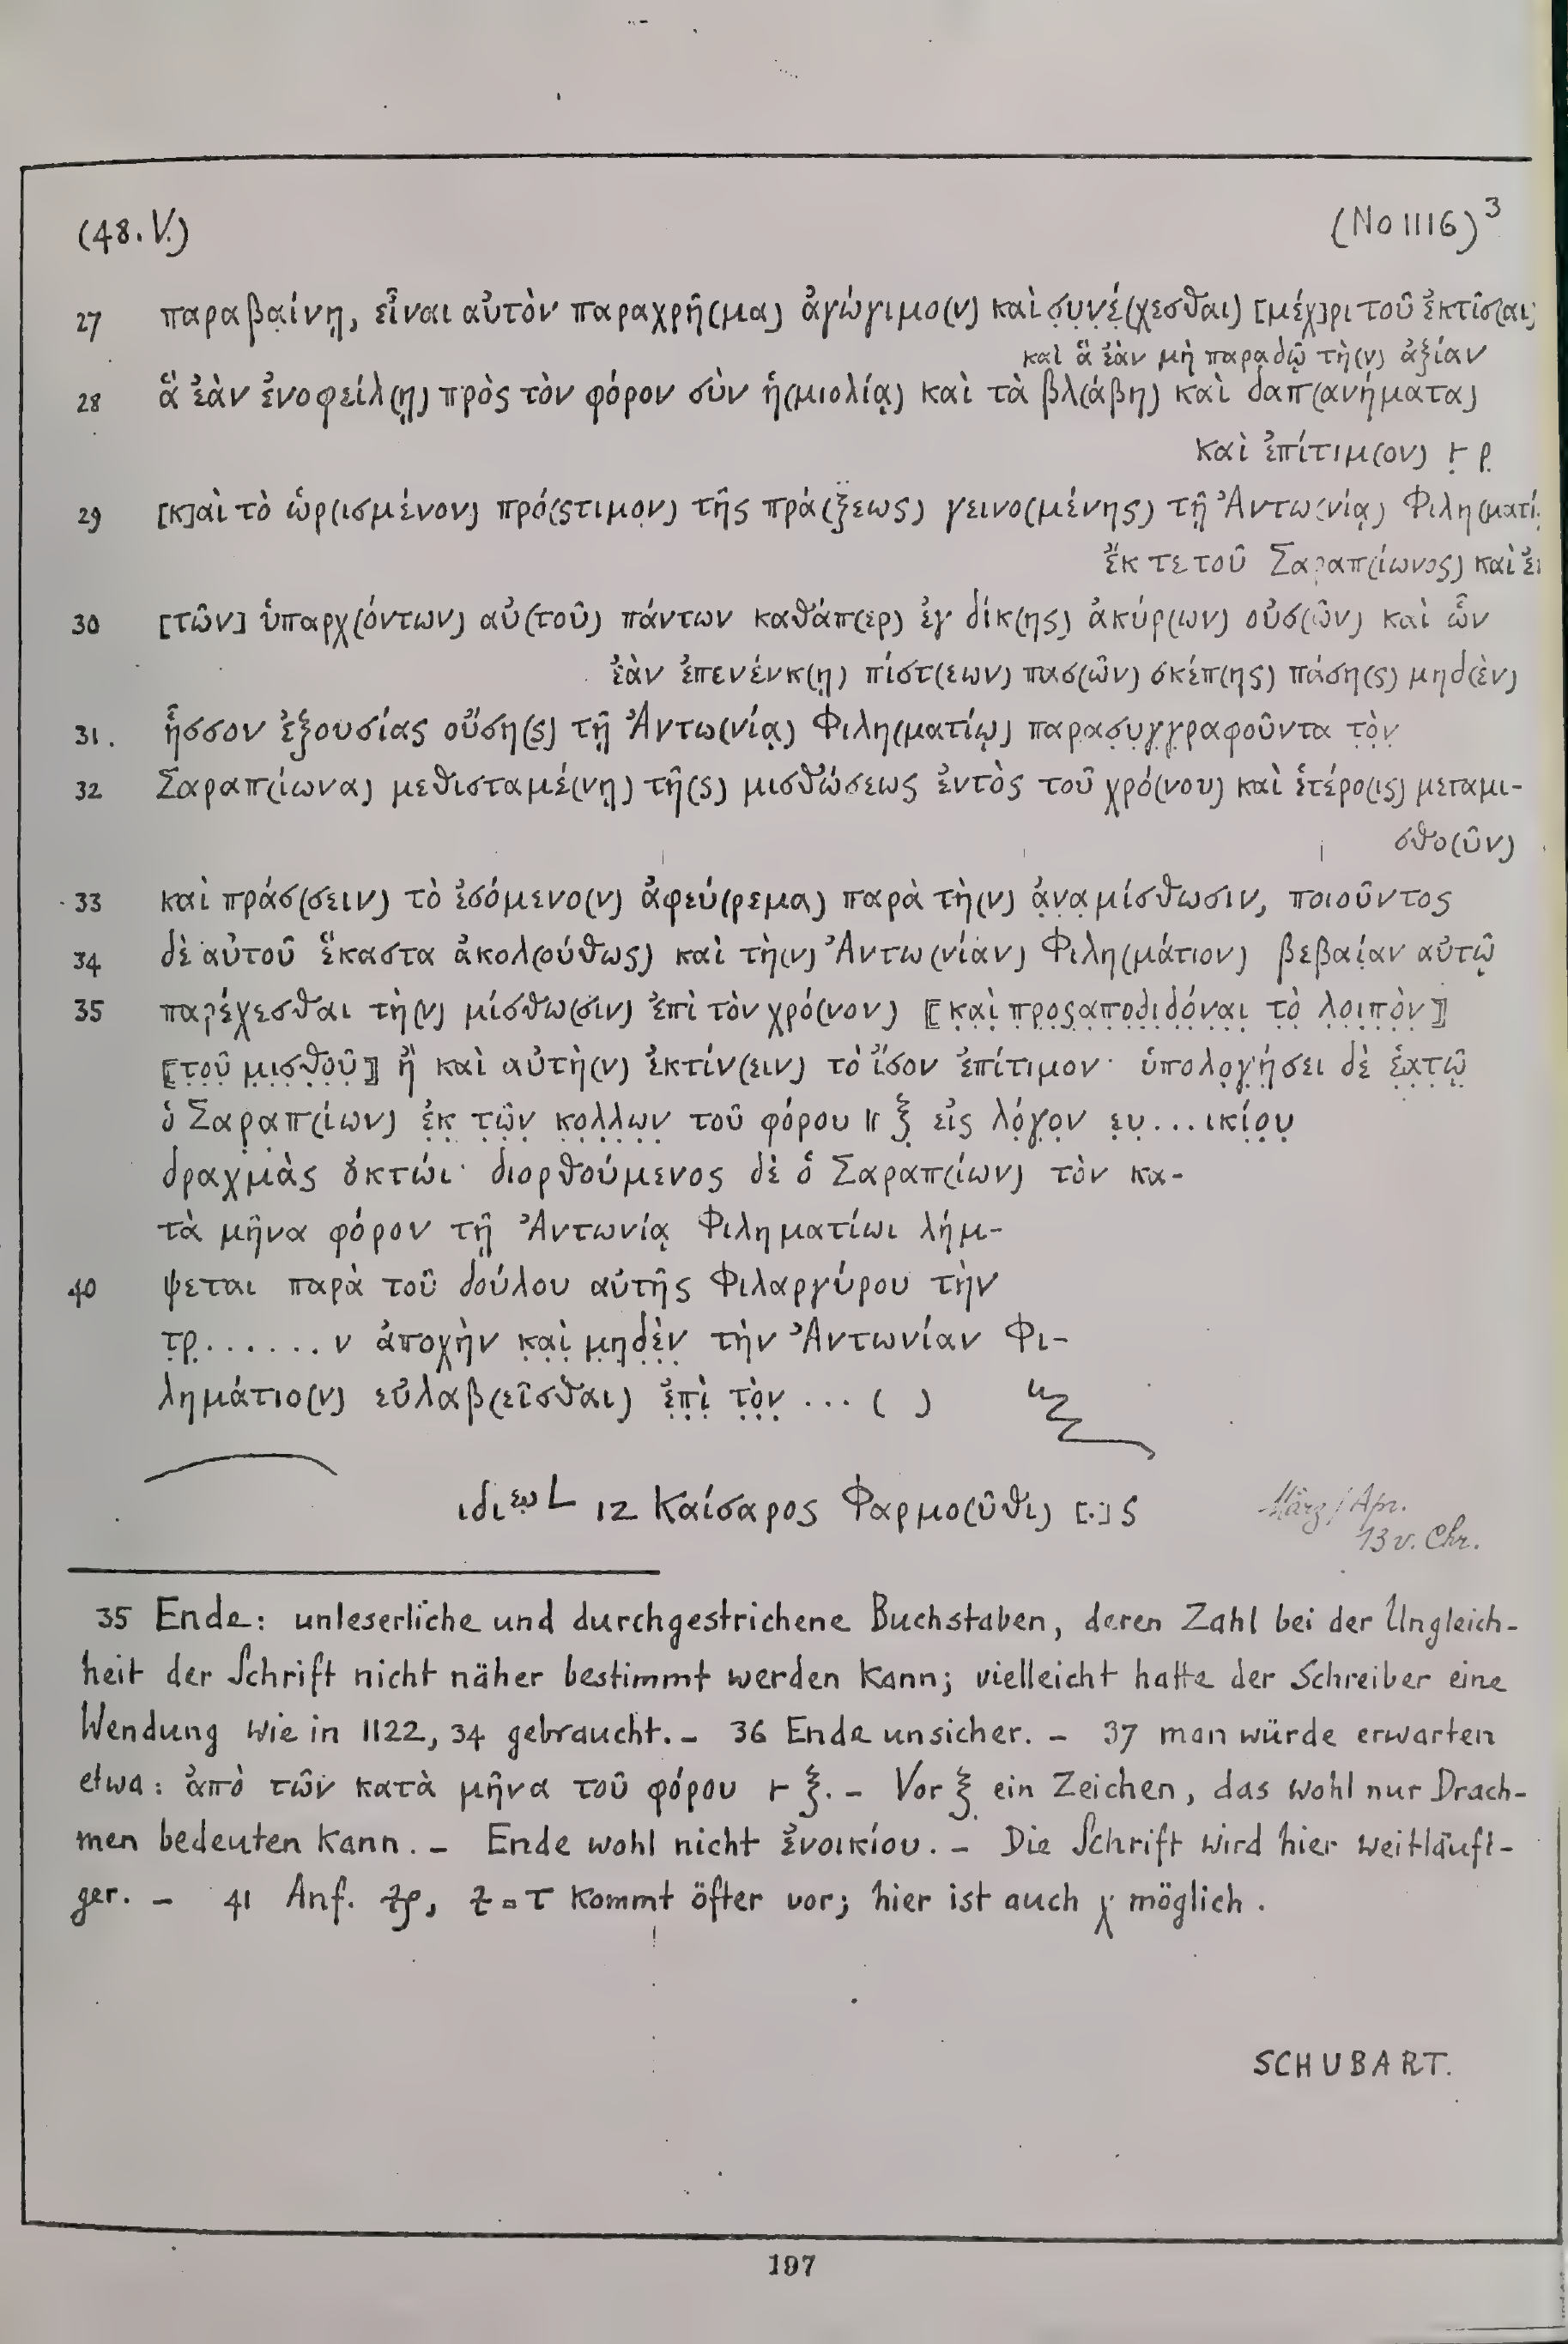 (48.V.) (No 1116)³
27 παραβαίνῃ, εἶναι αὐτὸν παραχρῆ(μα) ἀγώγιμο(ν) καὶ συνέ(χεσθαι) [μέχ]ρι τοῦ ἐκτῖσ(αι)
καὶ ἃ ἐὰν μὴ παραδῷ τὴ(ν) ἀξίαν
28 ἃ ἐὰν ἐνοφείλ(ῃ) πρὸς τὸν φόρον σὺν ἡ(μιολίᾳ) καὶ τὰ βλ(άβη) καὶ δαπ(ανήματα)
καὶ ἐπίτιμ(ον) 𐅂 ρ
29 [κ]αὶ τὸ ὡρ(ισμένον) πρό(ςτιμον) τῆς πρά(ξεως) γεινο(μένης) τῇ Ἀντω(νίᾳ) Φιλη(ματί
ἔκ τε τοῦ Σαραπ(ίωνος) καὶ ἐκ
30 [τῶν] ὑπαρχ(όντων) αὐ(τοῦ) πάντων καθάπ(ερ) ἐγ δίκ(ης) ἀκύρ(ων) οὐσ(ῶν) καὶ ὧν
ἐὰν ἐπενένκ(ῃ) πίστ(εων) πασ(ῶν) σκέπ(ης) πάση(ς) μηδ(ὲν)
31. ἧσσον ἐξουσίας οὔση(ς) τῇ Ἀντω(νίᾳ) Φιλη(ματίῳ) παρασυγγραφοῦντα τὸν
32 Σαραπ(ίωνα) μεθισταμέ(νῃ) τῆ(ς) μισθώσεως ἐντὸς τοῦ χρό(νου) καὶ ἑτέρο(ις) μεταμι-
σθο(ῦν)
33 καὶ πράσ(σειν) τὸ ἐσόμενο(ν) ἀφεύ(ρεμα) παρὰ τὴ(ν) ἀναμίσθωσιν, ποιοῦντος
34 δὲ αὐτοῦ ἕκαστα ἀκολ(ούθως) καὶ τὴ(ν) Ἀντω(νίαν) Φιλη(μάτιον) βεβαίαν αὐτῷ
35 παρέχεσθαι τὴ(ν) μίσθω(σιν) ἐπὶ τὸν χρό(νον) ⟦καὶ προςαποδιδόναι τὸ λοιπὸν⟧
⟦τοῦ μισθοῦ⟧ ἢ καὶ αὐτὴ(ν) ἐκτίν(ειν) τὸ ἴσον ἐπίτιμον· ὑπολογήσει δὲ ἑατῷ
ὁ Σαραπ(ίων) ἐκ τῶν κολλων τοῦ φόρου 𐅂 ξ εἰς λόγον ευ...ικίου
δραχμὰς ὀκτώι· διορθούμενος δὲ ὁ Σαραπ(ίων) τὸν κα-
τὰ μῆνα φόρον τῇ Ἀντωνίᾳ Φιληματίωι λήμ-
40 ψεται παρὰ τοῦ δούλου αὐτῆς Φιλαργύρου τὴν
τρ.......ν ἀποχὴν καὶ μηδὲν τὴν Ἀντωνίαν Φι-
λημάτιο(ν) εὐλαβ(εῖσθαι) ἐπὶ τὸν ... ( )
ιδιεω L ιζ Καίσαρος Φαρμο(ῦθι) [.]ς März/Apr.
13 v. Chr.
35 Ende: unleserliche und durchgestrichene Buchstaben, deren Zahl bei der Ungleich-
heit der Schrift nicht näher bestimmt werden kann; vielleicht hatte der Schreiber eine
Wendung wie in 1122, 34 gebraucht. – 36 Ende unsicher. – 37 man würde erwarten
etwa: ἀπὸ τῶν κατὰ μῆνα τοῦ φόρου 𐅂 ξ. – Vor ξ ein Zeichen, das wohl nur Drach-
men bedeuten kann. – Ende wohl nicht ἐνοικίου. – Die Schrift wird hier weitläufi-
ger. – 41 Anf. τρ, z = τ kommt öfter vor; hier ist auch χ möglich.
SCHUBART.
197